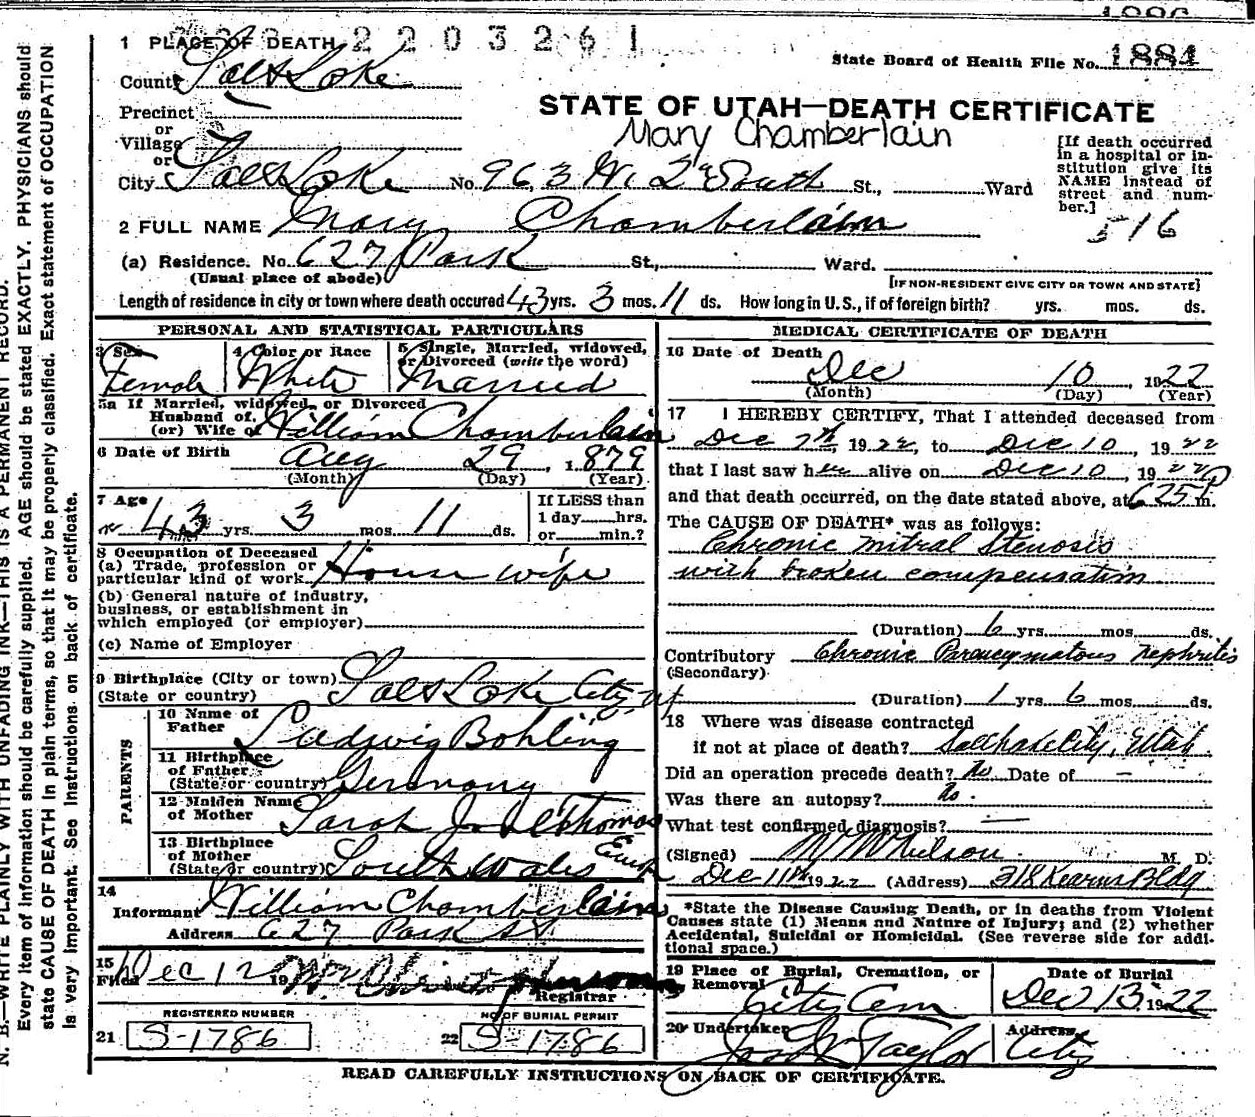 2203261
1 PLACE OF DEATH
State Board of Health File No. 1884
County Salt Lake
STATE OF UTAH—DEATH CERTIFICATE
Precinct
or
Village
Mary Chamberlain
or
City Salt Lake No. 963 W. 2nd South St., Ward
[If death occurred
in a hospital or in-
stitution give its
NAME instead of
street and num-
ber.]
516
2 FULL NAME Mary Chamberlain
(a) Residence. No. 627 Park St., Ward.
(Usual place of abode)
[IF NON-RESIDENT GIVE CITY OR TOWN AND STATE]
Length of residence in city or town where death occured 43 yrs. 3 mos. 11 ds. How long in U.S., if of foreign birth? yrs. mos. ds.
PERSONAL AND STATISTICAL PARTICULARS
3 Sex
Female
4 Color or Race
White
5 Single, Married, widowed,
or Divorced (write the word)
Married
5a If Married, widowed, or Divorced
Husband of
(or) Wife of William Chamberlain
6 Date of Birth Aug 29, 1879
(Month) (Day) (Year)
7 Age
43 yrs. 3 mos. 11 ds.
If LESS than
1 day hrs.
or min.?
8 Occupation of Deceased
(a) Trade, profession or
particular kind of work House wife
(b) General nature of industry,
business, or establishment in
which employed (or employer)
(c) Name of Employer
9 Birthplace (City or town) Salt Lake City, Ut
(State or country)
PARENTS
10 Name of
Father Ludwig Bohling
11 Birthplace
of Father
(State or country) Germany
12 Maiden Name
of Mother Sarah Thomas
13 Birthplace
of Mother
(State or country) South Wales
14
Informant William Chamberlain
Address 627 Park St
15
Filed Dec 12 19
Registrar
REGISTERED NUMBER
21 S-1786
NO OF BURIAL PERMIT
22 S-1786
MEDICAL CERTIFICATE OF DEATH
16 Date of Death
Dec 10, 1922
(Month) (Day) (Year)
17 I HEREBY CERTIFY, That I attended deceased from
Dec 7th, 1922, to Dec 10, 1922
that I last saw her alive on Dec 10, 1922
and that death occurred, on the date stated above, at 625 P m.
The CAUSE OF DEATH* was as follows:
Chronic mitral Stenosis
with broken compensation
(Duration) 6 yrs. mos. ds.
Contributory Chronic Parencymatous nephritis
(Secondary)
(Duration) 1 yrs 6 mos. ds.
18 Where was disease contracted
if not at place of death? Salt Lake City, Utah.
Did an operation precede death? No Date of —
Was there an autopsy? No.
What test confirmed diagnosis? —
(Signed) Nelson M. D.
Dec 11th 1922 (Address) 318 Kearns Bldg
*State the Disease Causing Death, or in deaths from Violent
Causes state (1) Means and Nature of Injury; and (2) whether
Accidental, Suicidal or Homicidal. (See reverse side for addi-
tional space.)
19 Place of Burial, Cremation, or
Removal
City Cem
Date of Burial
Dec 13, 1922
20 Undertaker
Taylor
Address
City
READ CAREFULLY INSTRUCTIONS ON BACK OF CERTIFICATE.
N. B.—WRITE PLAINLY WITH UNFADING INK—THIS IS A PERMANENT RECORD.
Every item of information should be carefully supplied. AGE should be stated EXACTLY. PHYSICIANS should
state CAUSE OF DEATH in plain terms, so that it may be properly classified. Exact statement of OCCUPATION
is very important. See Instructions on back of certificate.